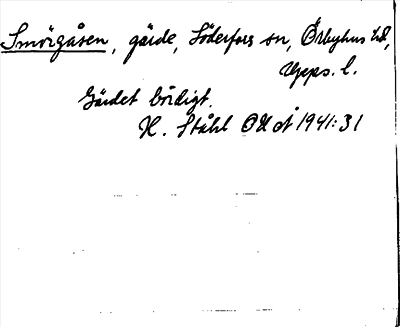 Smörgåsen, gärde, Söderfors sn, Örbyhus hd,
Upps. l.
Gärdet bördigt.
H. Ståhl OUoÅ 1941:31